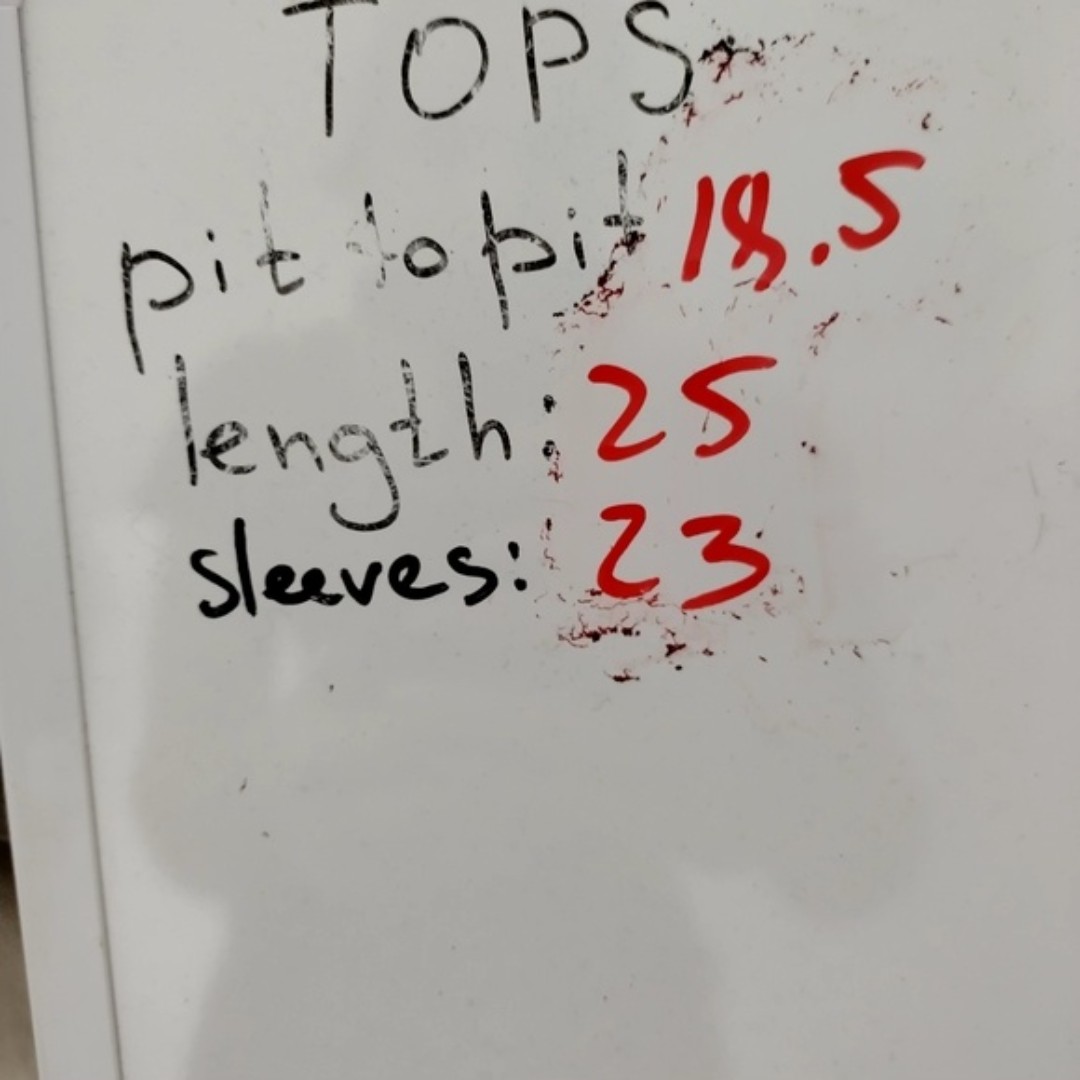 TOPS
pit to pit 18.5
length: 25
sleeves: 23